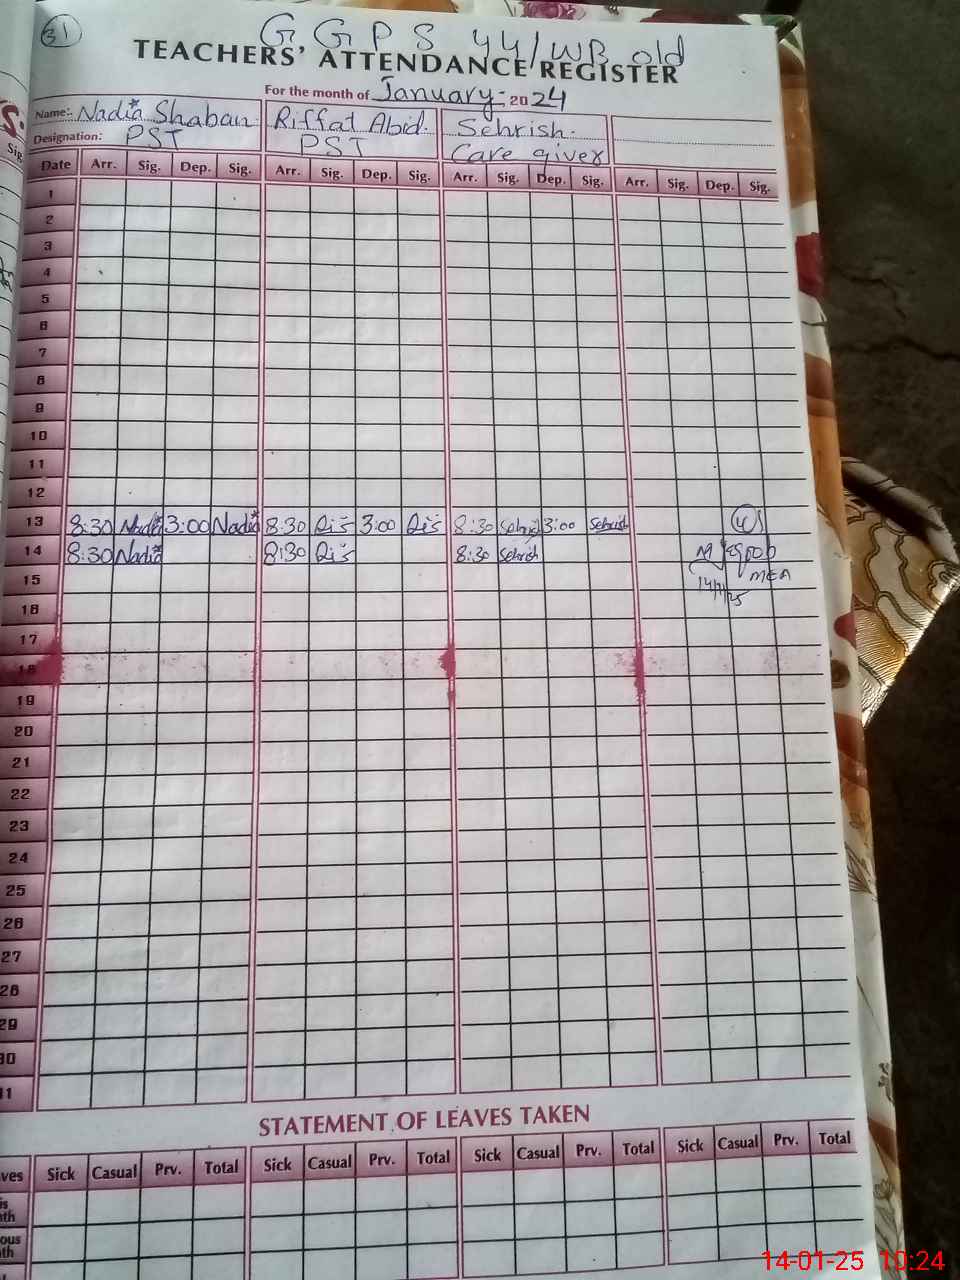 31
G G P S 44/WB old
TEACHERS' ATTENDANCE REGISTER
For the month of January- 2024
Name:- Nadia Shaban Riffat Abid. Sehrish.
Designation: PST PST Care giver
Date Arr. Sig. Dep. Sig. Arr. Sig. Dep. Sig. Arr. Sig. Dep. Sig. Arr. Sig. Dep. Sig.
1
2
3
4
5
6
7
8
9
10
11
12
13 8:30 Nadia 3:00 Nadia 8:30 3:00 8:30 Sehrish 3:00 Sehrish
14 8:30 Nadia 8:30 8:30 Sehrish
MEA
15
14/1/25
16
17
18
19
20
21
22
23
24
25
26
27
28
29
30
31
STATEMENT OF LEAVES TAKEN
ves Sick Casual Prv. Total Sick Casual Prv. Total Sick Casual Prv. Total Sick Casual Prv. Total
is
th
ous
th
14-01-25 10:24